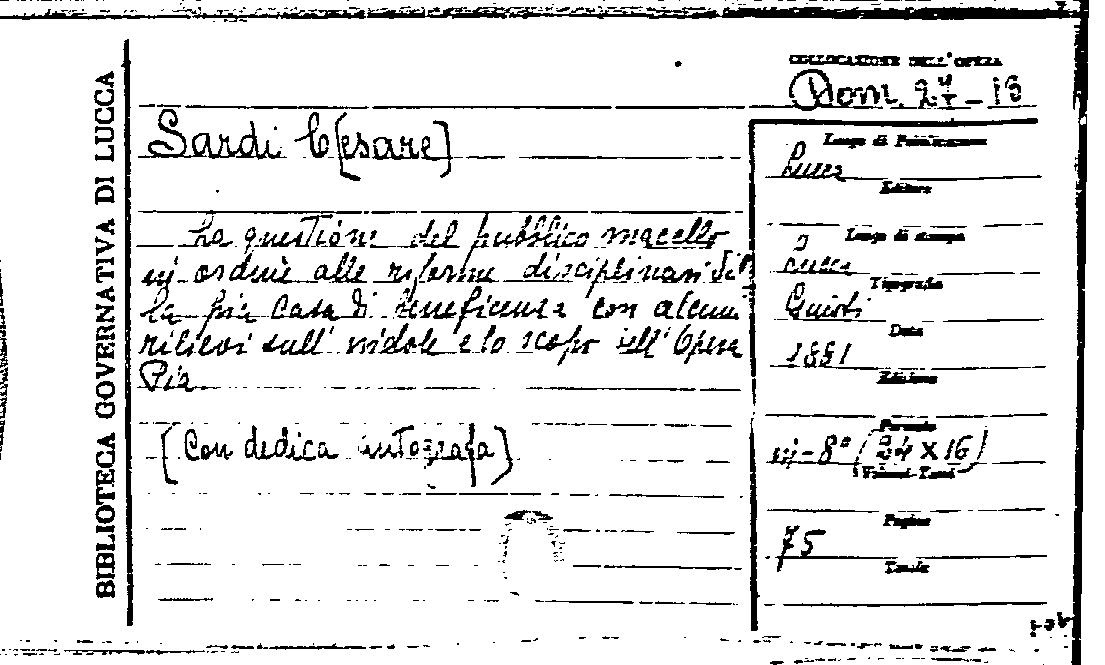 BIBLIOTECA GOVERNATIVA DI LUCCA
COLLOCAZIONE DELL'OPERA
Dom. 27 - 15
Sardi C[esare]
La questione del pubblico macello
in ordine alle riforme disciplinari
la pia Casa di beneficenza con alcuni
rilievi sull' indole e lo scopo dell'Opera
Pia.
[Con dedica autografa]
Luogo di Pubblicazione
Lucca
Editore
Luogo di stampa
Lucca
Tipografia
Giusti
Data
1881
Edizione
Formato
in-8° (24 x 16)
Volumi-Tomi
Pagine
75
Tavole